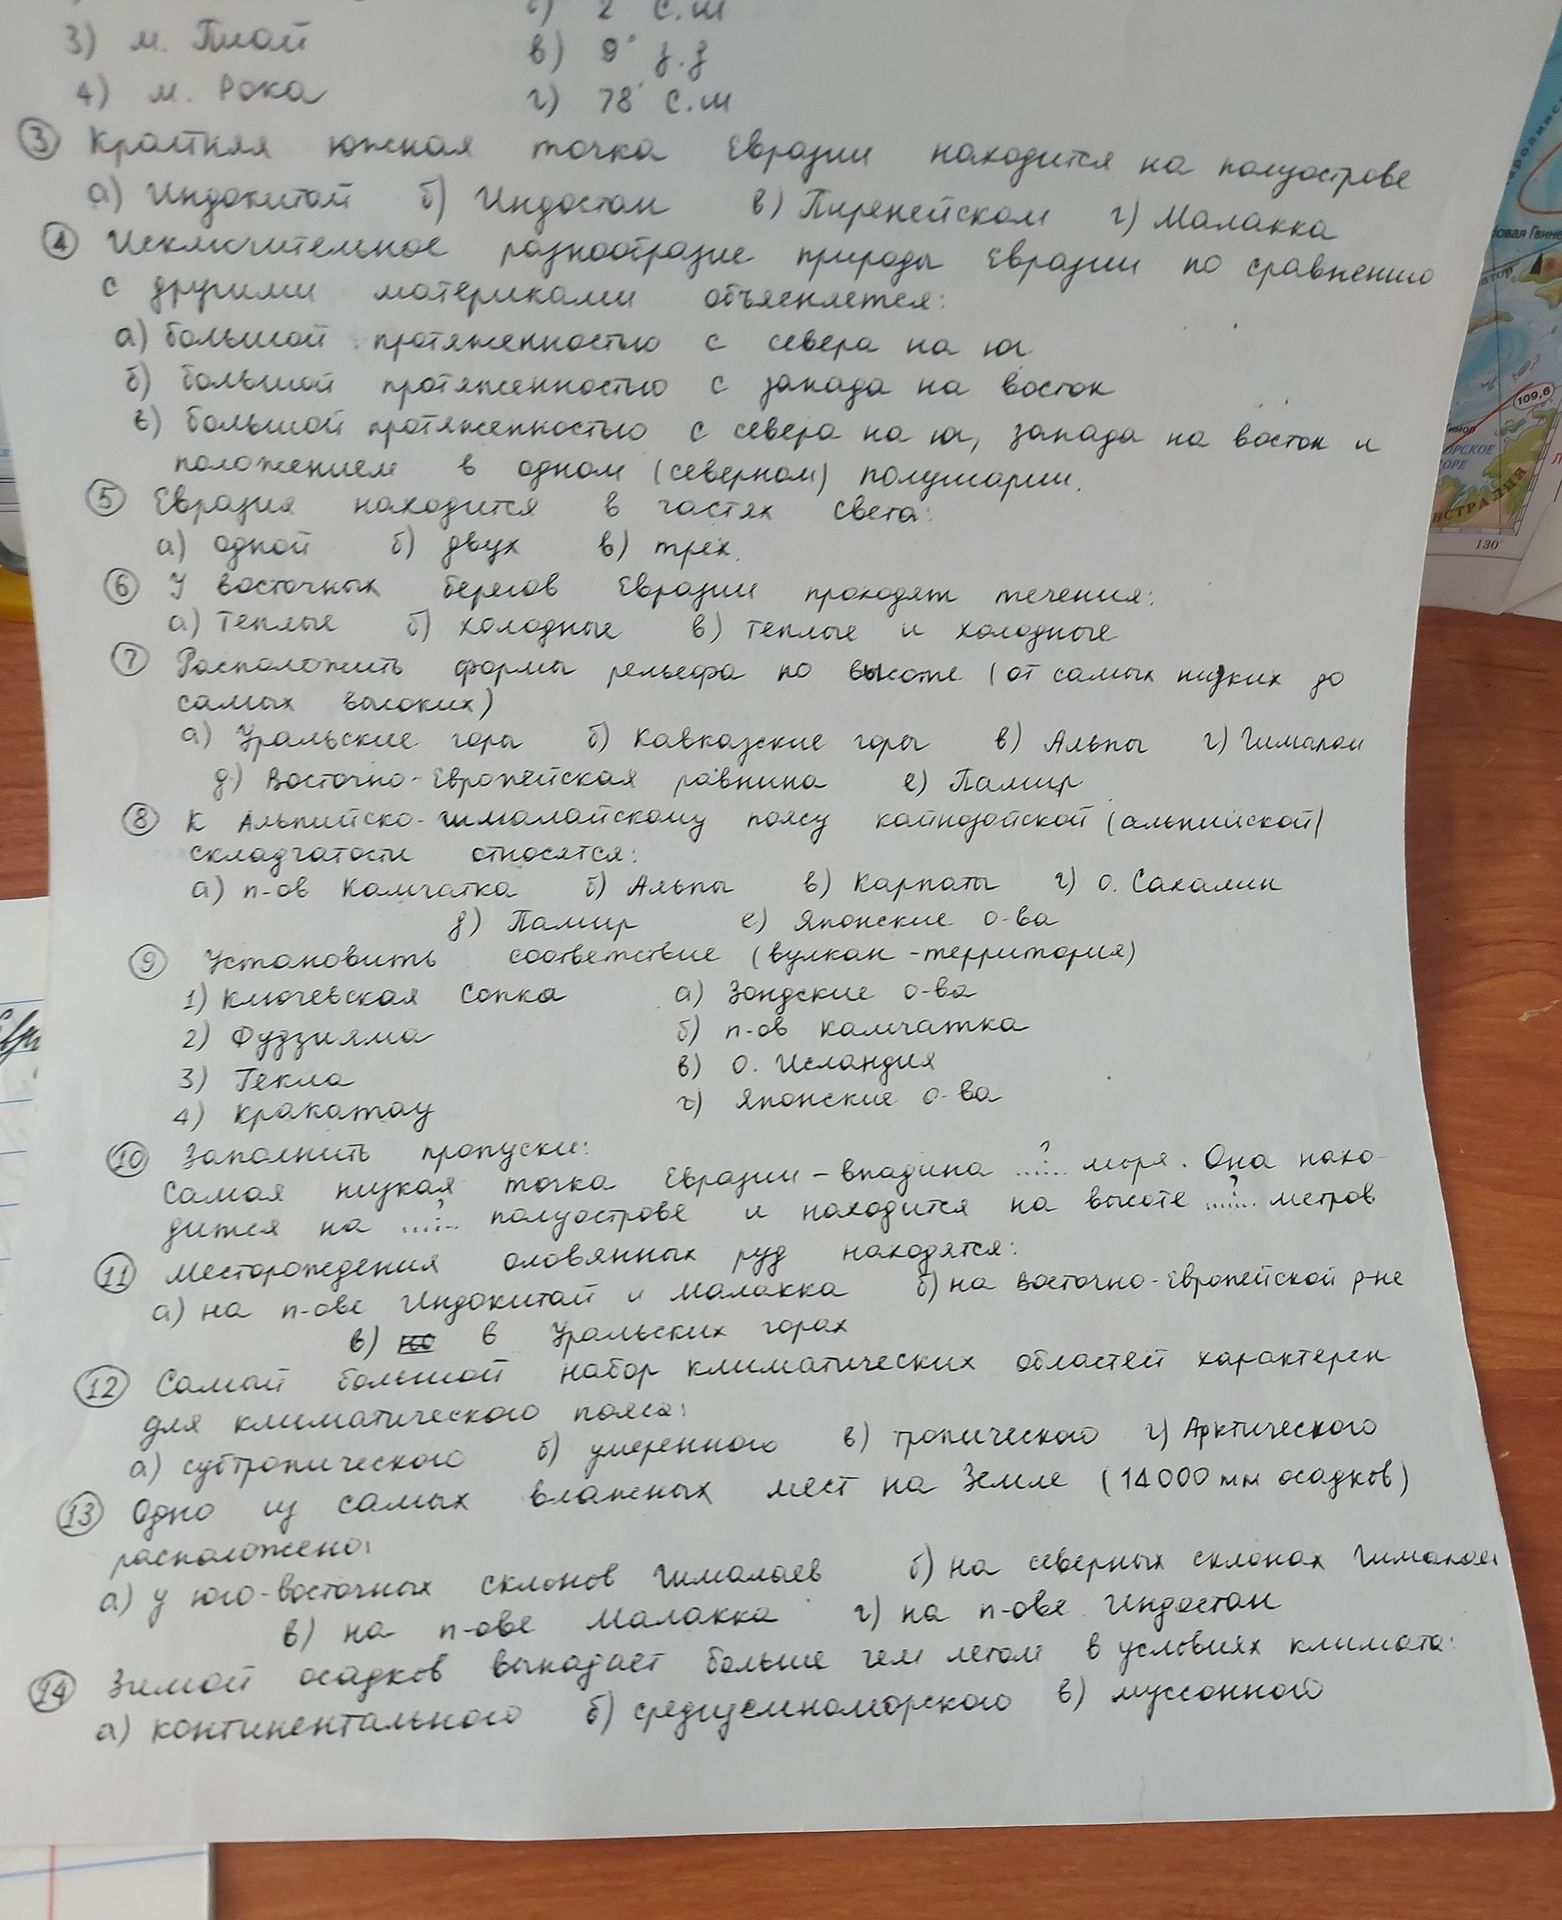 г) 2° с.ш
3) м. Пиай
в) 9° з.д
4) м. Рока
г) 78° с.ш
3 Крайняя южная точка Евразии находится на полуострове
а) Индокитай б) Индостан в) Пиренейском г) Малакка
4 Исключительное разнообразие природы Евразии по сравнению
с другими материками объясняется:
а) большой протяженностью с севера на юг
б) большой протяженностью с запада на восток
в) большой протяженностью с севера на юг, запада на восток и
положением в одном (северном) полушарии.
5 Евразия находится в частях света:
а) одной б) двух в) трех.
6 У восточных берегов Евразии проходят течения:
а) теплые б) холодные в) теплые и холодные
7 Расположить формы рельефа по высоте (от самых низких до
самых высоких)
а) Уральские горы б) Кавказские горы в) Альпы г) Гималаи
д) Восточно-Европейская равнина е) Памир
8 К Альпийско-гималайскому поясу кайнозойской (альпийской)
складчатости относятся:
а) п-ов Камчатка б) Альпы в) Карпаты г) о. Сахалин
д) Памир е) Японские о-ва
9 Установить соответствие (вулкан - территория)
1) Ключевская Сопка а) Зондские о-ва
2) Фудзияма б) п-ов Камчатка
3) Гекла в) о. Исландия
4) Кракатау г) Японские о-ва
10 Заполнить пропуски:
Самая низкая точка Евразии - впадина ...?... моря. Она нахо-
дится на ...?... полуострове и находится на высоте ...?... метров
11 Месторождения оловянных руд находятся:
а) на п-ове Индокитай и Малакка б) на Восточно-Европейской р-не
в) в Уральских горах
12 Самый большой набор климатических областей характерен
для климатического пояса:
а) субтропического б) умеренного в) тропического г) Арктического
13 Одно из самых влажных мест на Земле (14000 мм осадков)
расположено:
а) у юго-восточных склонов Гималаев б) на северных склонах Гималаев
в) на п-ове Малакка г) на п-ове Индостан
14 Зимой осадков выпадает больше чем летом в условиях климата:
а) континентального б) средиземноморского в) муссонного
овая Гвине
109,6
ОРСКОЕ
ОРЕ
СТРАЛИЯ
130